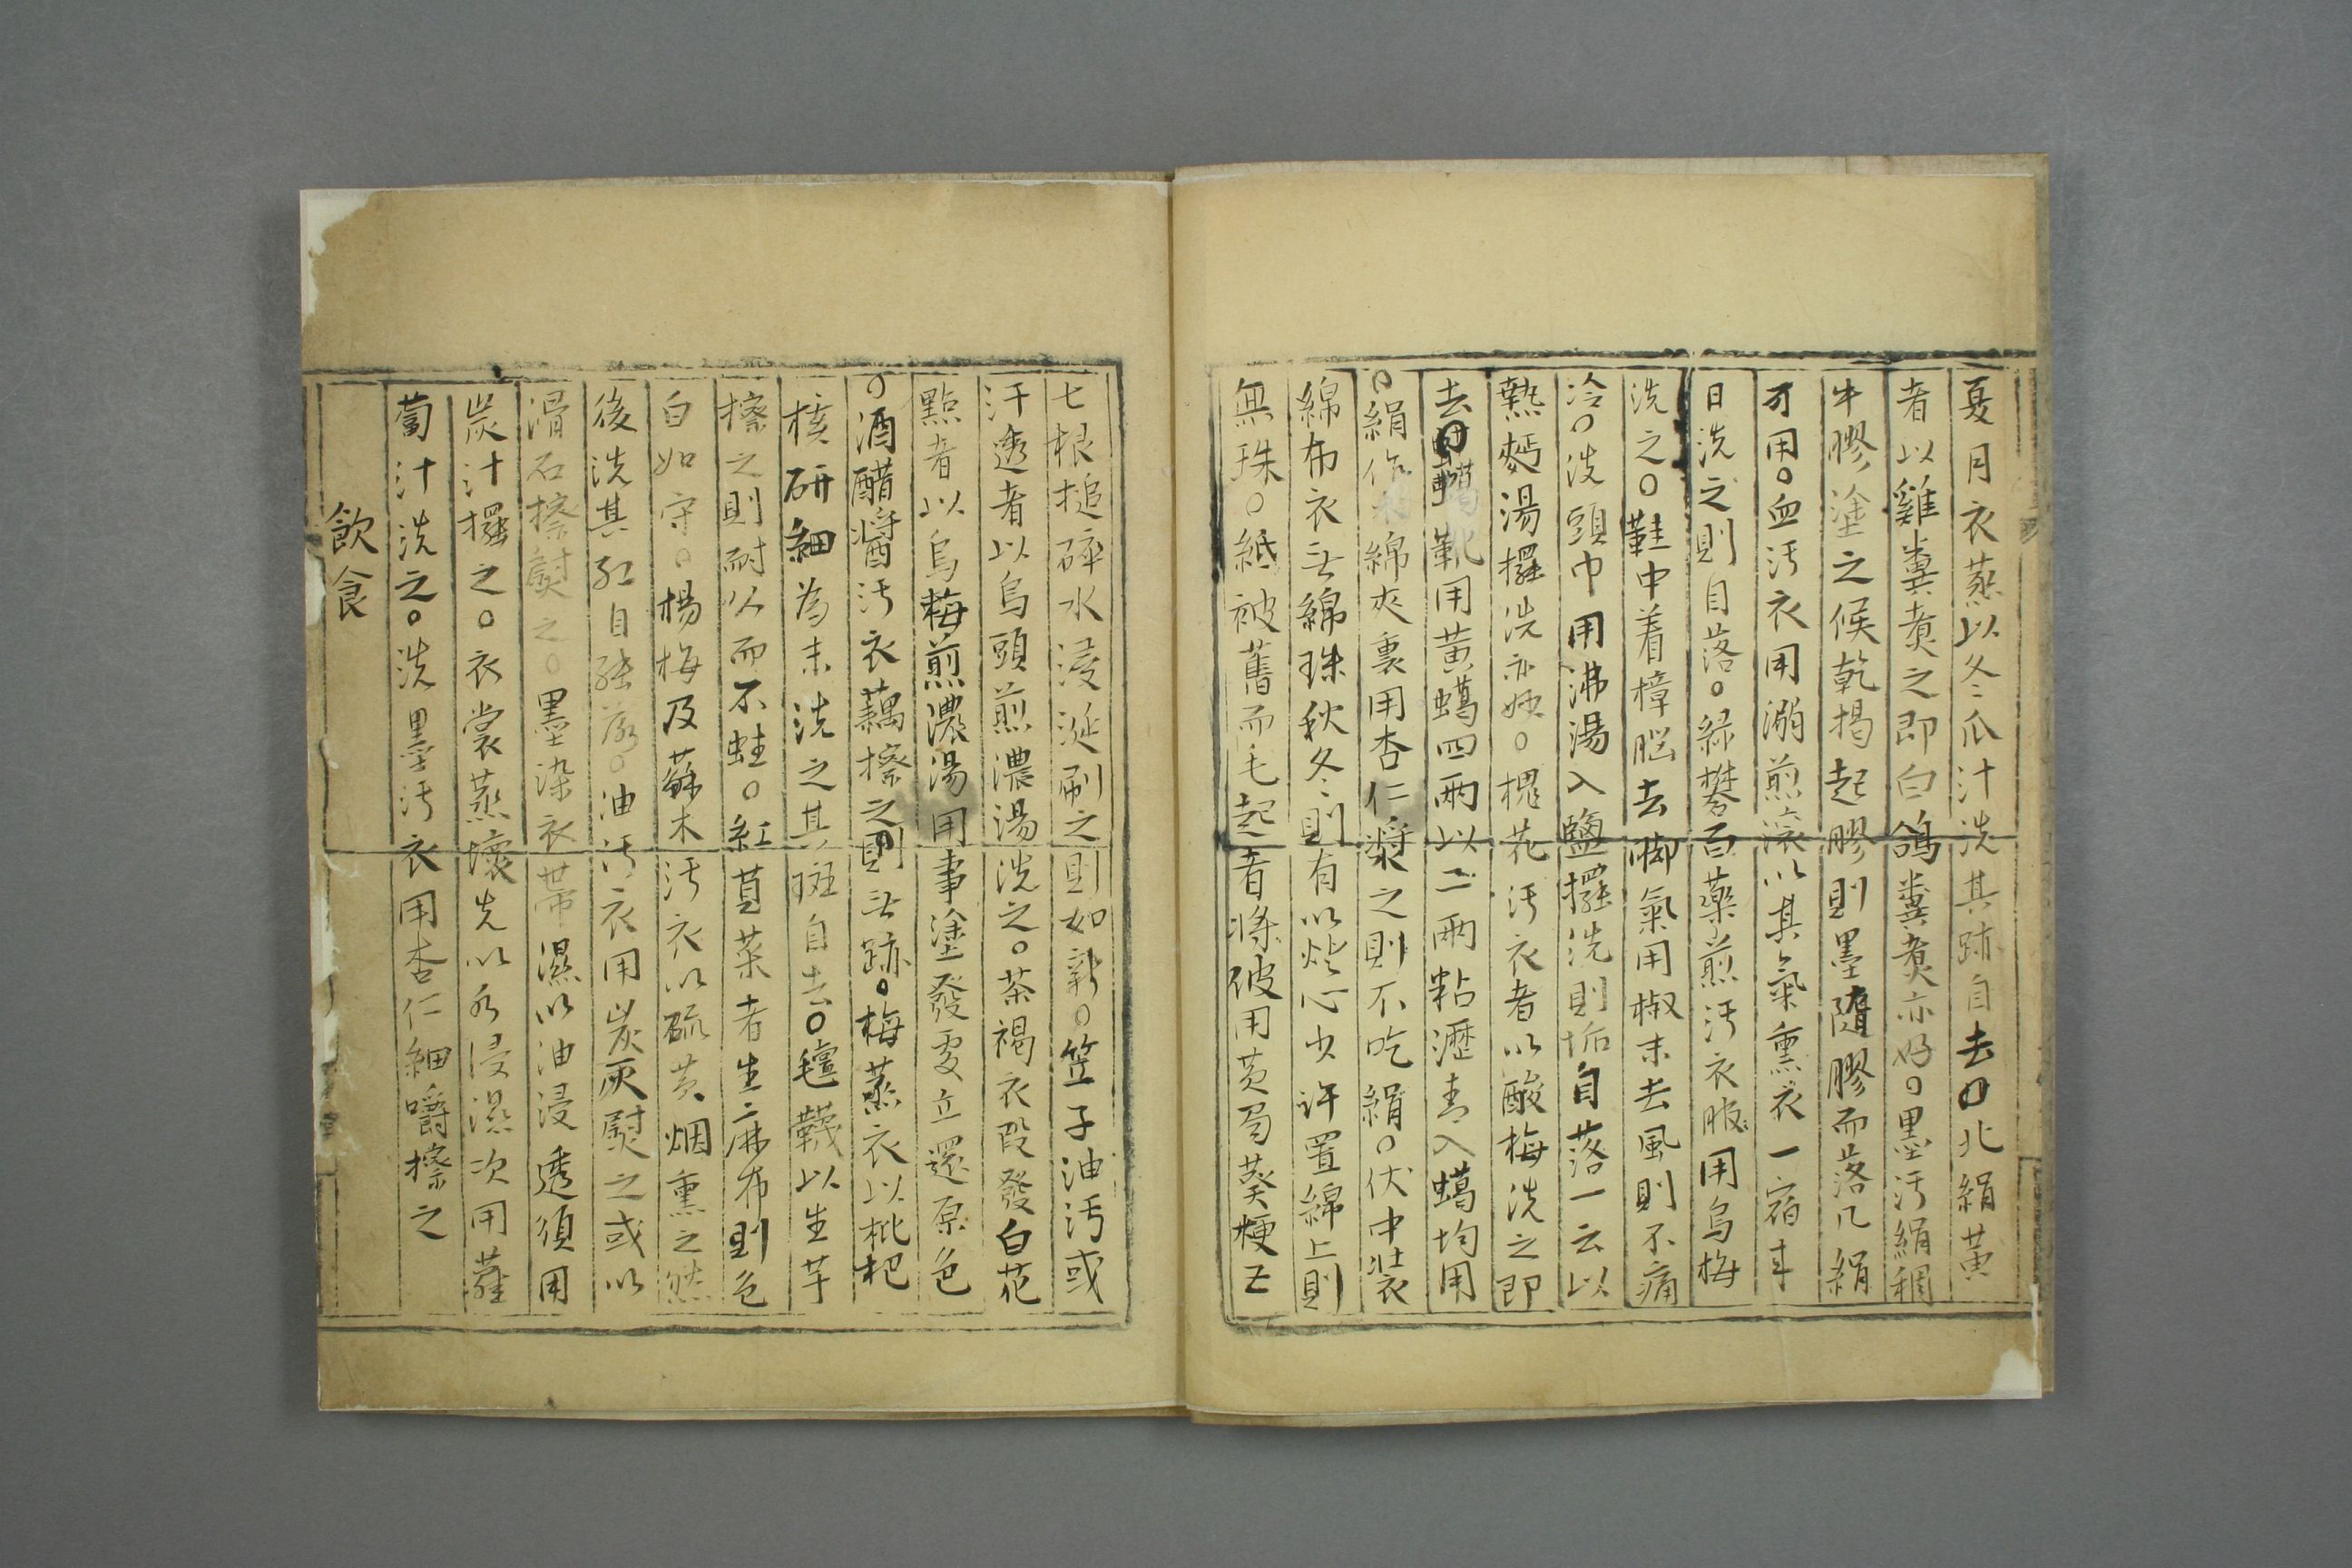 夏月衣蒸以冬瓜汁洗其跡自去○北絹黃
者以雞糞煮之即白鴿糞煮亦好○墨汚絹稠
牛膠塗之候乾揭起膠則墨隨膠而落凡絹
可用○血汚衣用溺煎滾以其氣熏衣一宿来
日洗之則自落○綠礬百藥煎汚衣服用烏梅
洗之○鞋中着樟脳去脚氣用椒末去風則不痛
冷○洗頭巾用沸湯入鹽擺洗則垢自落一云以
熱麪湯擺洗亦妙○槐花汚衣者以酸梅洗之即
去○蠟靴用黃蠟四兩以二兩粘瀝青入蠟均用
○絹作綿夾裏用杏仁漿之則不吃絹○伏中裝
綿布衣无綿珠秋冬則有以灯心少許置綿上則
無珠○紙被舊而毛起者將破用黃蜀葵梗五
七根搥碎水浸涎刷之則如新○笠子油汚或
汗透者以烏頭煎濃湯洗之○茶褐衣段發白花
點者以烏梅煎濃湯用事塗發處立還原色
○酒醋醬汚衣藕擦之則无跡○梅蒸衣以枇杷
核研細為末洗之其斑自去○氊韈以生芋
擦之則耐久而不蛀○紅莧菜煮生麻布則色
白如𦭘○楊梅及蘇木汚衣以硫黃烟熏之然
後洗其紅自落○油汚衣用炭灰熨之或以
滑石擦熨之○墨染衣帶濕以油浸透須用
炭汁擺之○衣裳蒸壞先以水浸濕次用蘿
蔔汁洗之○洗墨汚衣用杏仁細嚼擦之
飲食